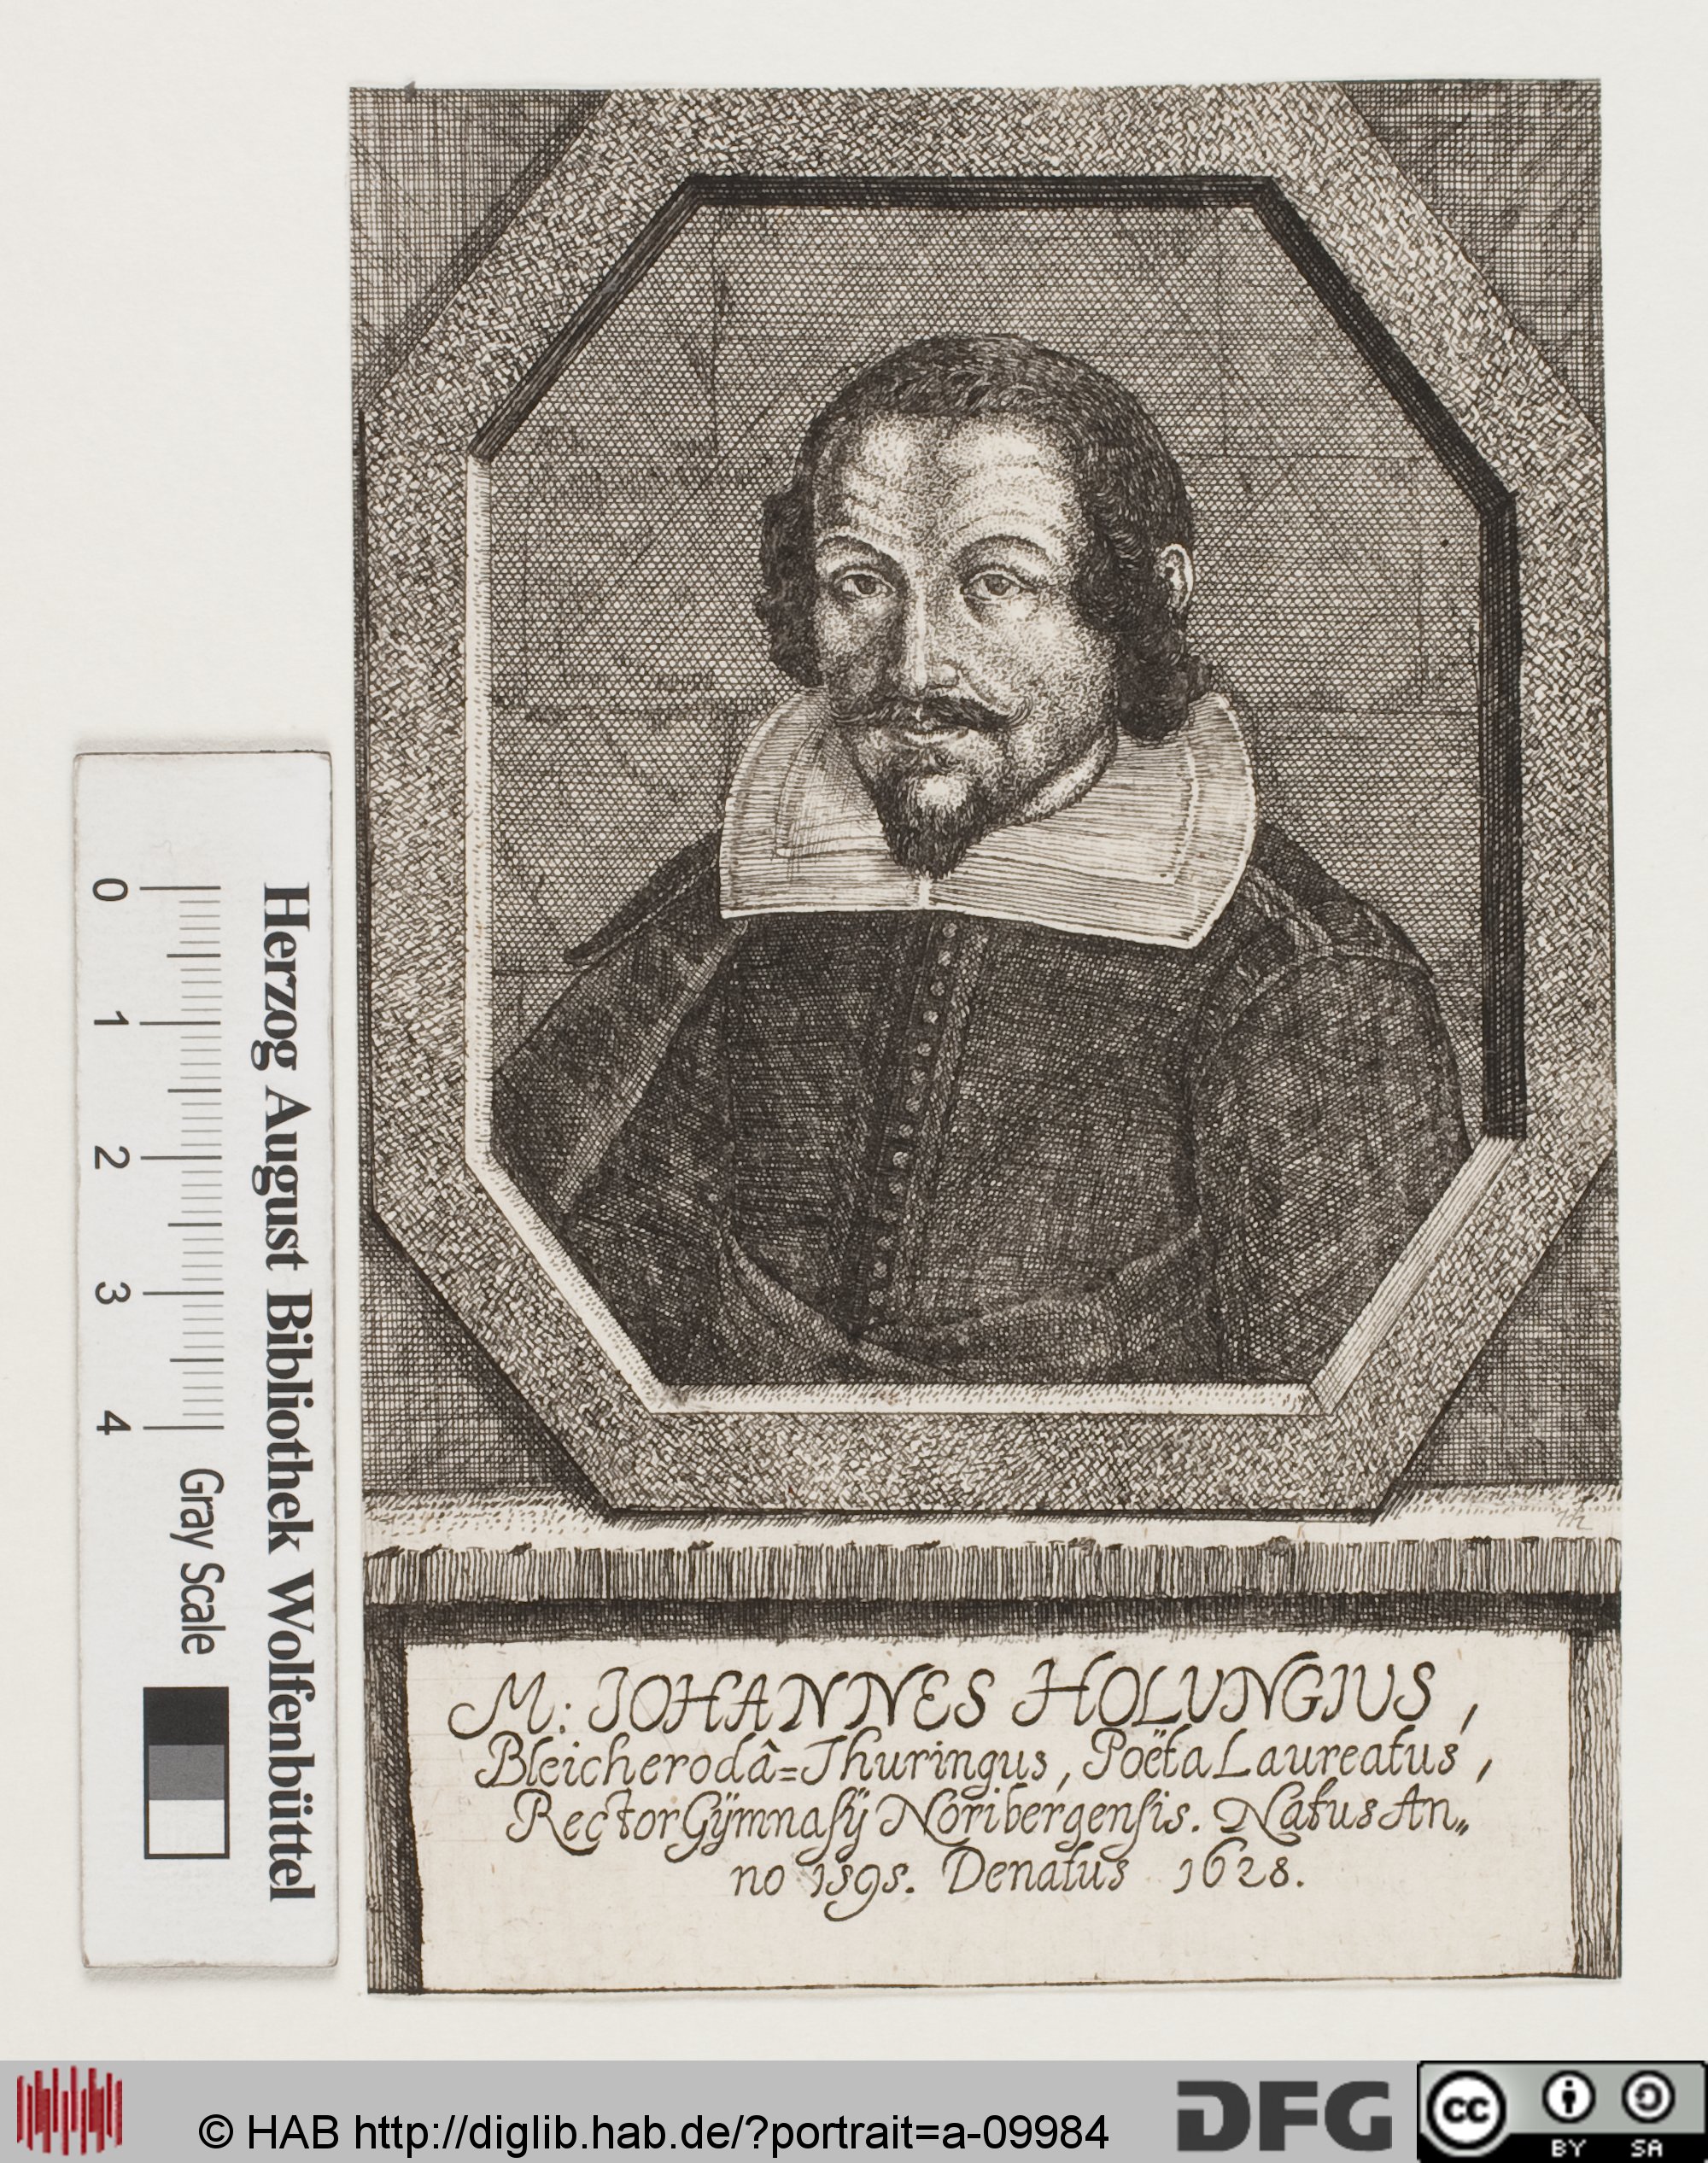 M: JOHANNES HOLUNGIUS,
Bleicherodâ=Thuringus, Poëta Laureatus,
Rector Gÿmnaſÿ Noribergenſis. Natus An„
no 1595. Denatus 1628.
Herzog August Bibliothek Wolfenbüttel
0 1 2 3 4 Gray Scale
© HAB http://diglib.hab.de/?portrait=a-09984
DFG
cc BY SA